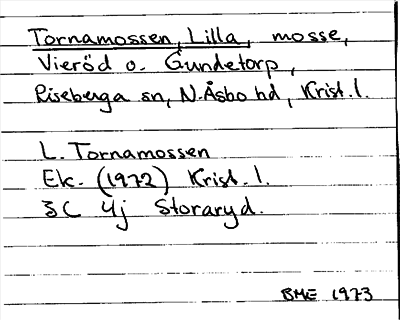 Tornamossen, Lilla, mosse,
Vieröd o. Gundetorp,
Riseberga sn, N. Åsbo hd, Krist. l.
L. Tornamossen
Ek. (1972) Krist. l.
3C 4j Storaryd.
BME 1973